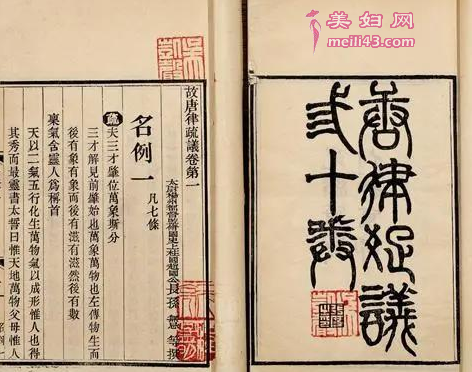 美妇网
meili43.com
唐律疏議
弎十卷
故唐律疏議卷第一
太尉揚州都督監修國史上柱國趙國公長孫無忌等撰
名例一 凡七條
疏夫三才肇位萬象斯分
三才解見前肇始也萬象萬物也左傳物生而
後有象有象而後有滋滋然後有數
稟氣含靈人爲稱首
天以二氣五行化生萬物氣以成形惟人也得
其秀而最靈書太誓曰惟天地萬物父母惟人